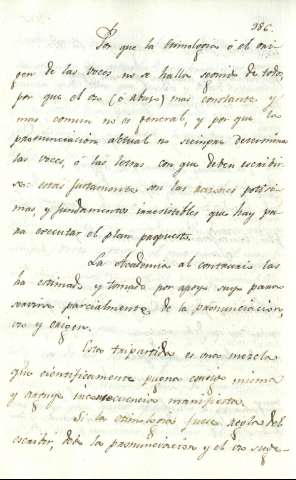 286.
Por que la etimologia ó el ori-
gen de las voces, no se halla seguida de todos,
por que el uso (ó abuso) mas constante y
mas comun no es general, y por que la
pronunciación actual no siempre determina
las voces, ó las letras con que deben escribir-
se: estas justamente son las razones potisi-
mas, y fundamentos irresistibles que hay pa-
ra executar el plan propuesto.
La Academia al contrario las
ha estimado y tomado por apoyo suyo para
servirse parcialmente de la pronunciacion,
uso y origen.
Esta tripartida es una mezcla
que cientificamente pugna consigo misma
y arguye inconsecuencia manifiesta.
Si la etimologia fuese regla del
escribir, debe la pronunciacion y el uso suge-